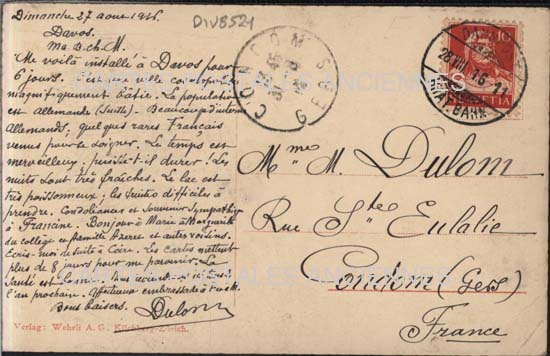 Dimanche 27 aout 1916.
DIV8521
Davos.
Ma B.ch.M.
Me voilà installé à Davos pour
6 jours. C'est une ville
magnifiquement bâtie. La population
est allemande (Suisse). Beaucoup d'
Allemands, quelques rares Français
venus pour se soigner. Le temps est
merveilleux, puisse-t-il durer! Les
nuits sont très fraîches. Le lac est
très poissonneux; les truites difficiles à
prendre. Condoléances et Souvenir Sympathique
à Francine. Bonjour à Marie à Marguerite
du collège et autres voisins.
Écris-moi de suite à Coire. Les cartes mettent
plus de 8 jours pour me parvenir. La
Santé est bonne.
à au prochain. Affectueux
Bons baisers. Dulom
Verlag: Wehrli A. G., Kilchberg-Zürich.
CONDOM
GERS
HELVETIA
28 VIII 16
Mme M. Dulom
Rue Ste Eulalie
Condom (Gers)
France
CARTES POSTALES ANCIENNES